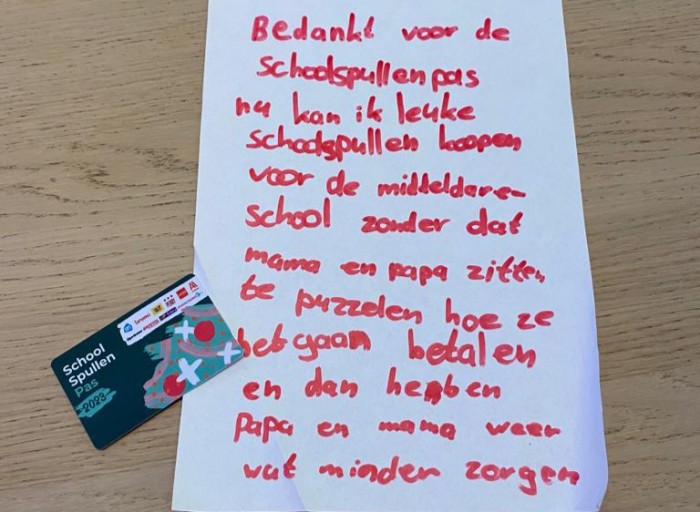 Bedankt voor de
schoolspullenpas
nu kan ik leuke
schoolspullen koopen
voor de middeldare-
school zonder dat
mama en papa zitten
te puzzelen hoe ze
het gaan betalen
en dan hebben
papa en mama weer
wat minder zorgen
School
Spullen
Pas
2023